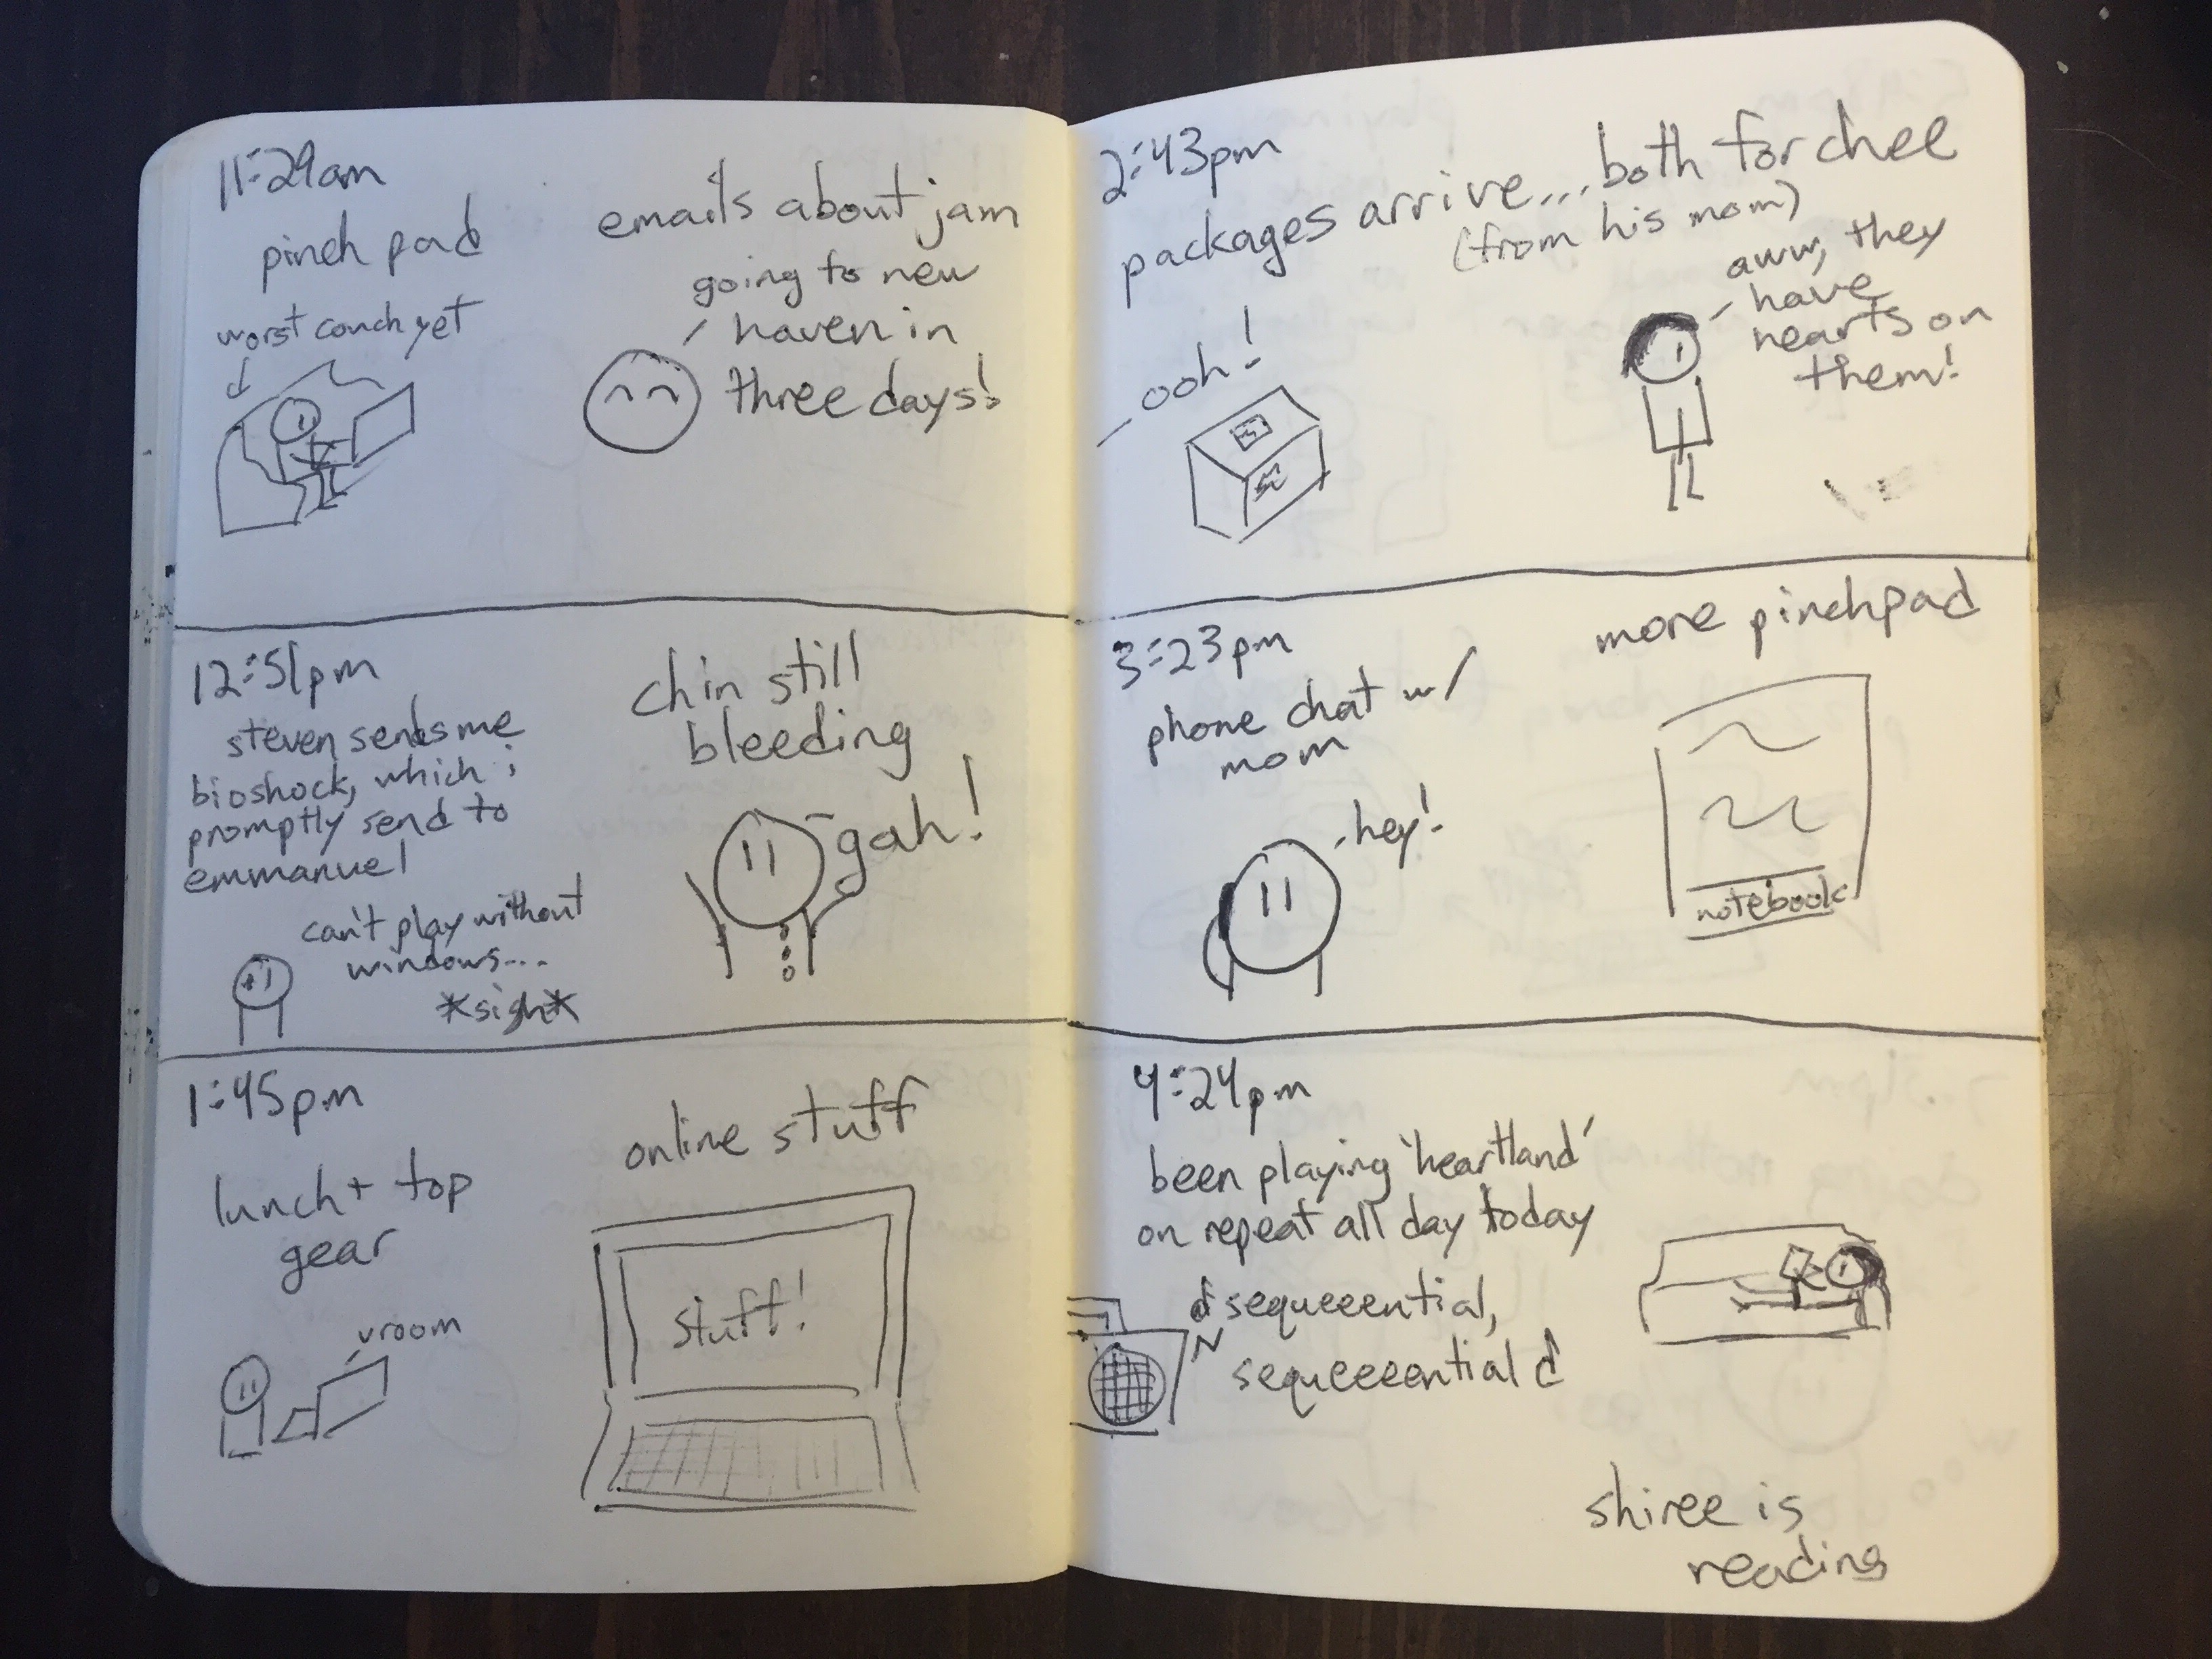 11:29am
pinch pad
worst couch yet
emails about jam
going to new
haven in
three days!
12:51pm
steven sends me
bioshock, which i
promptly send to
emmanuel
can't play without
windows...
*sigh*
chin still
bleeding
gah!
1:45pm
lunch + top
gear
vroom
online stuff
stuff!
2:43pm
packages arrive... both for chee
(from his mom)
ooh!
aww, they
have
hearts on
them!
3:23pm
phone chat w/
mom
hey!
more pinchpad
notebook
4:24pm
been playing 'heartland'
on repeat all day today
♪ sequeeential,
sequeeeential ♪
shiree is
reading